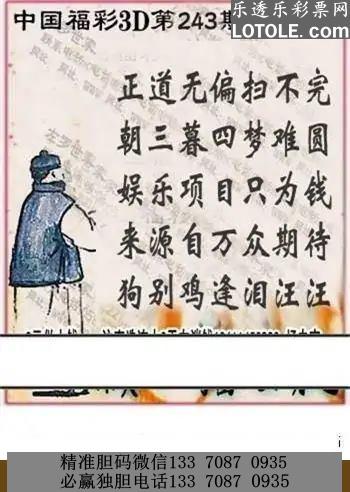 乐透乐彩票网
LOTOLE.COM
中国福彩3D第243期
正道无偏扫不完
朝三暮四梦难圆
娱乐项目只为钱
来源自万众期待
狗别鸡逢泪汪汪
精准胆码微信133 7087 0935
必赢独胆电话133 7087 0935